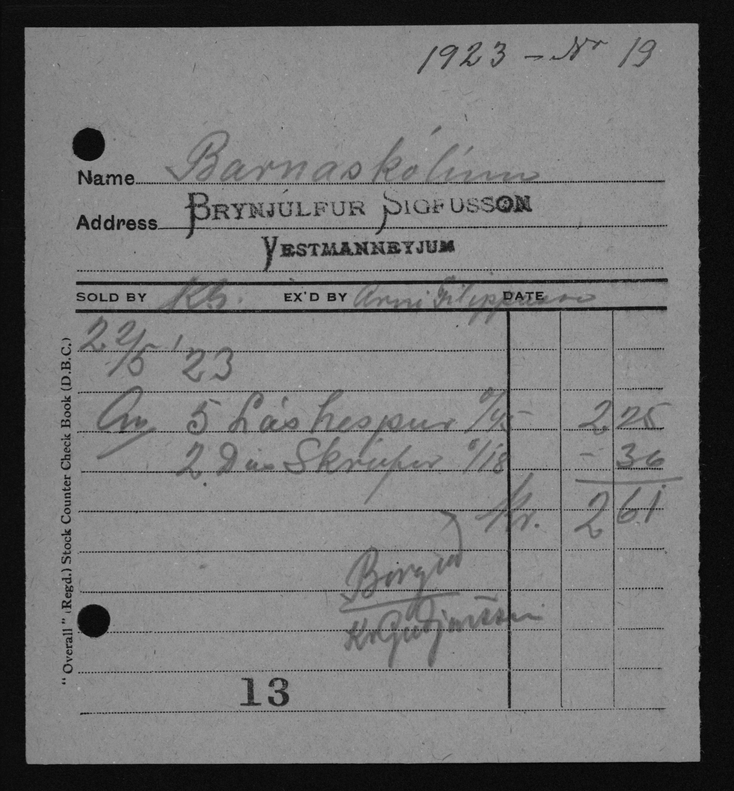 1923 - Nr 19
Name Barnaskólinn
Address BRYNJÚLFUR SIGFUSSON
VESTMANNEYJUM
SOLD BY Kh. EX'D BY Arni Filippusson DATE
22/5 '23
5 Láshespur º/45 2 25
2 Dus Skrúfur º/18 - 36
Kr. 2 61
Borgað
Kr Guðjónsson
13
"Overall" (Regd.) Stock Counter Check Book (D.B.C.)